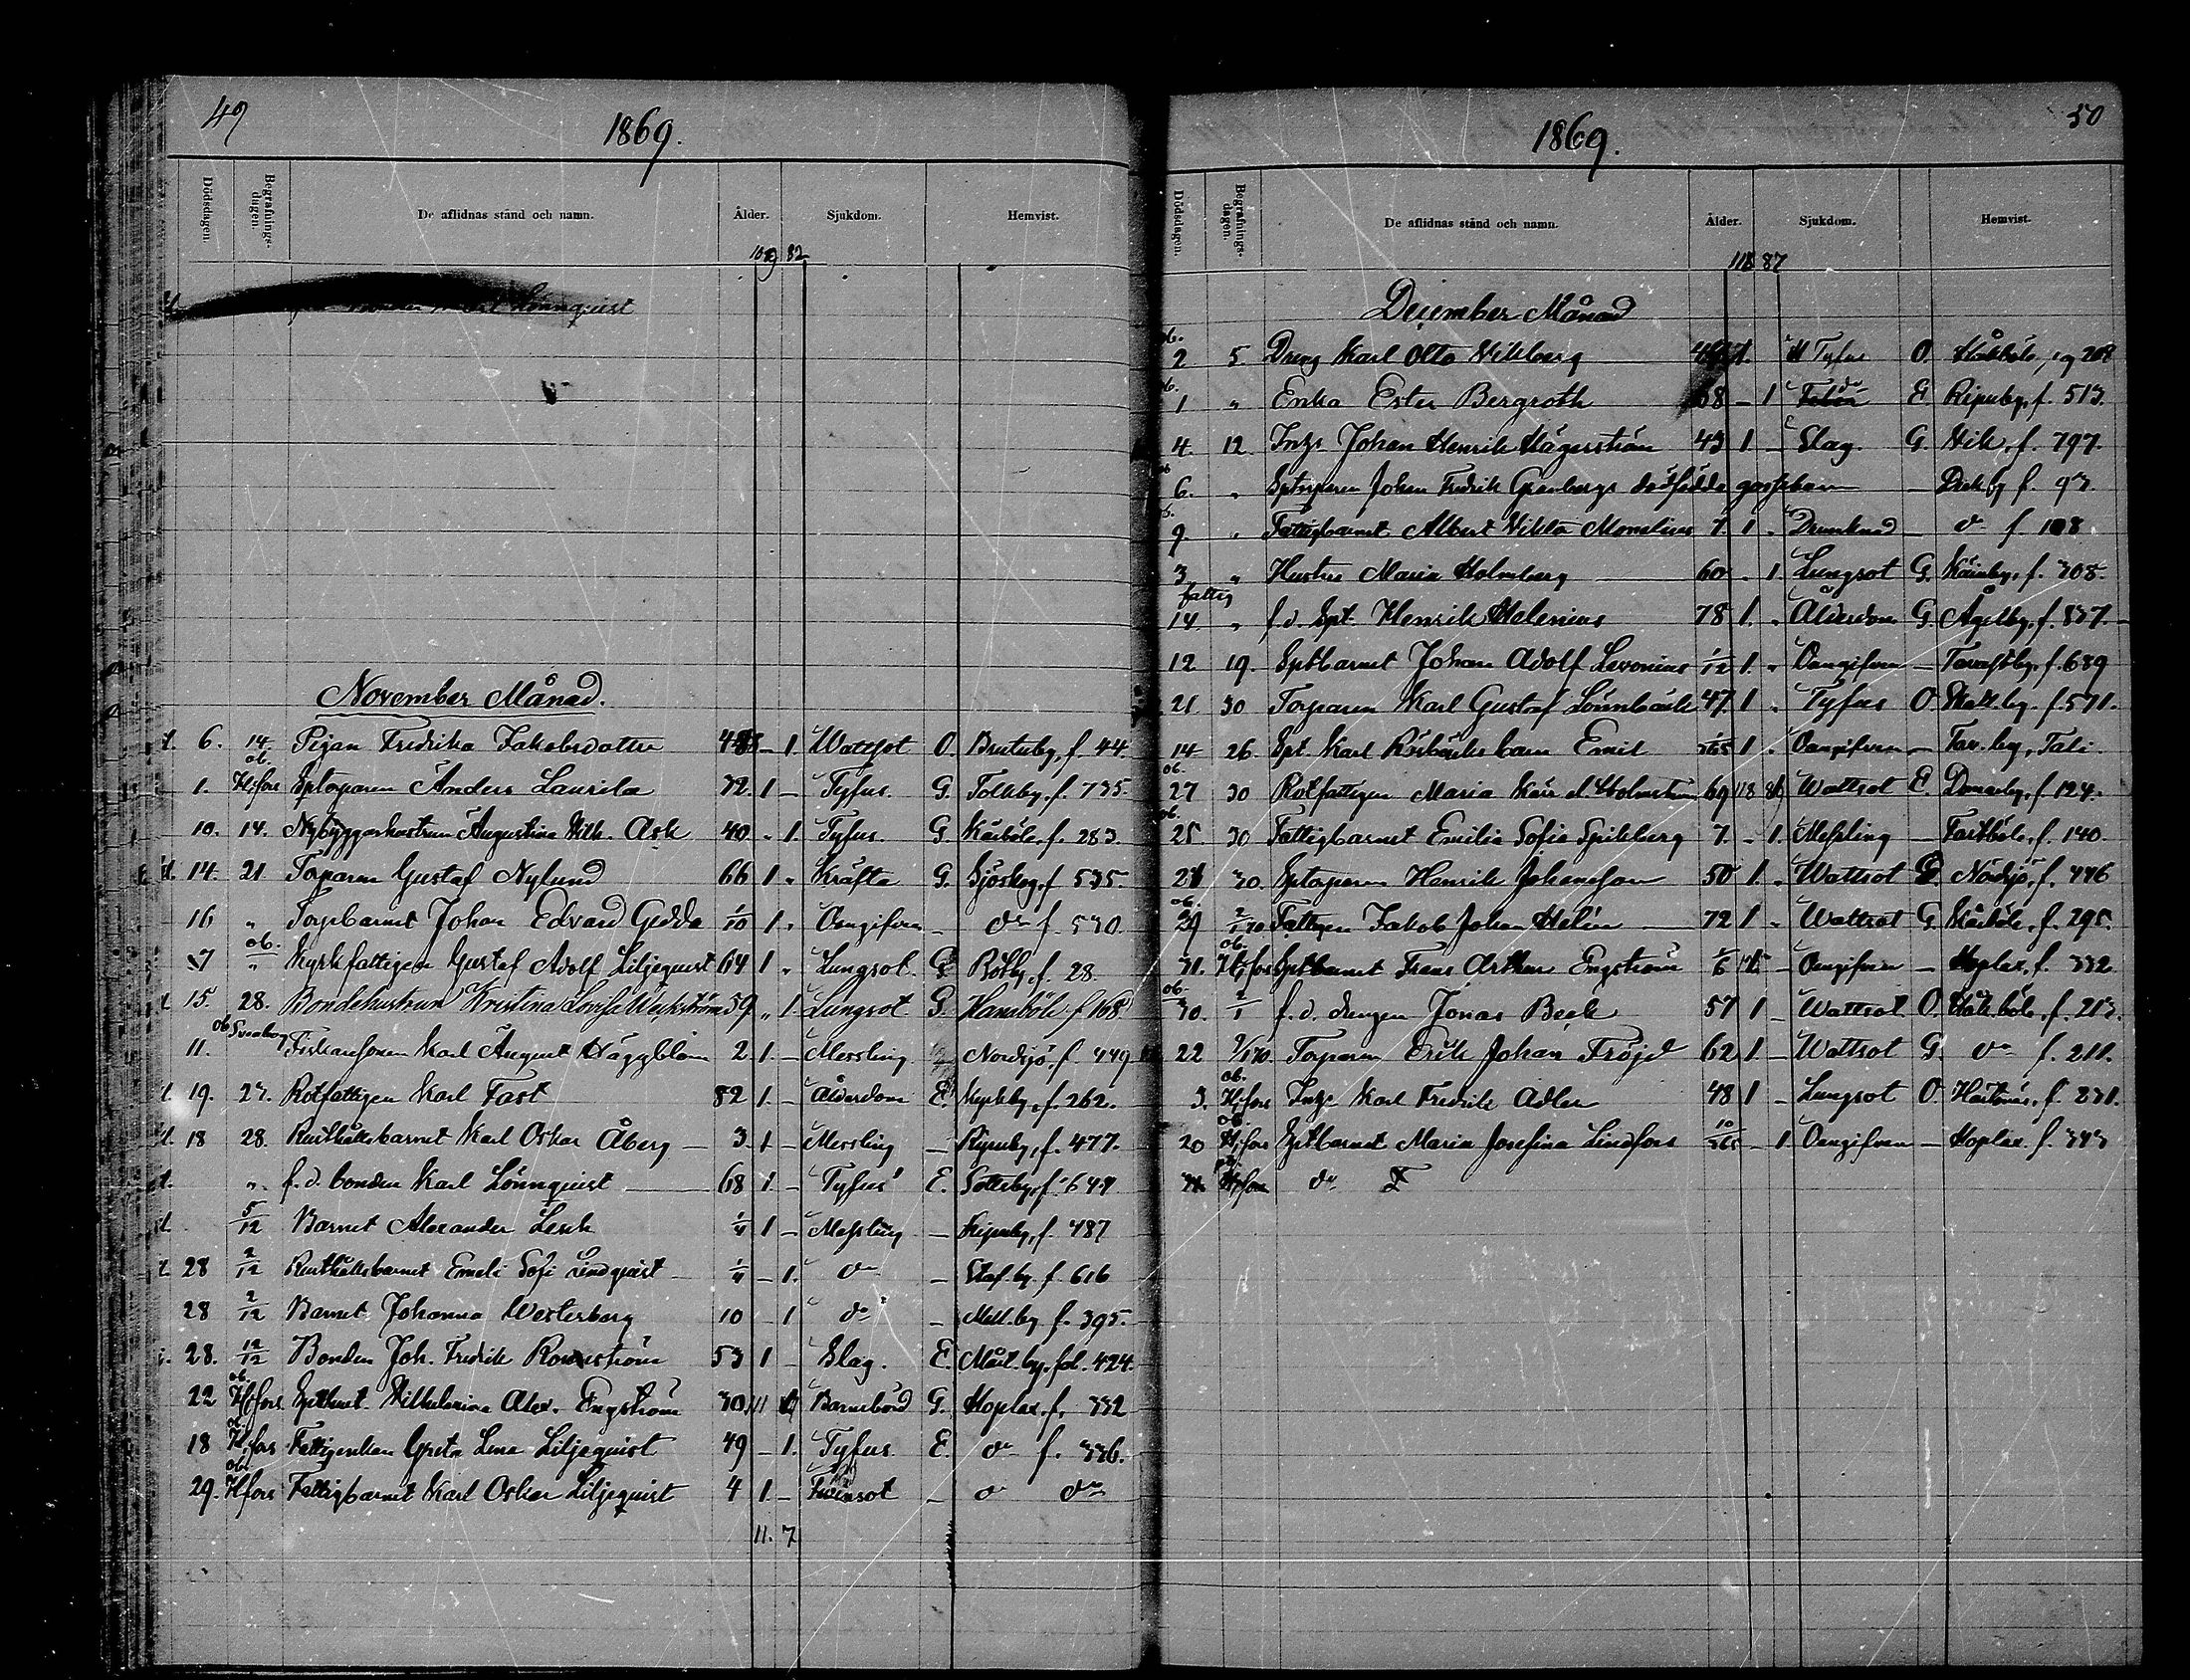 49
1869.
Dödsdagen. Begrafnings-dagen. De aflidnas stånd och namn. Ålder. Sjukdom. Hemvist.
82
Lönnquist
November Månad.
6. 14. Pigan Fredrika Jakobsdotter 48 – 1. Wattsot O. Brutuby, f. 44.
1. ob. H:fors Sptorparen Anders Laurila 32. 1 – Tyfus. G. Tolkby. f. 735.
10. 14. Nybyggarhustrun Augustina Wilh. Ask 40 „ 1. Tyfus. G. Kårböle. f. 283.
14. 21. Torparen Gustaf Nylund 66 1 „ Kräfta G. Sjöskog, f. 535.
16 „ Torpbarnet Johan Edvard Gedda 1/10 1 „ Oangifven – do f. 530.
7 ob. „ Kyrkfattigen Gustaf Adolf Liljequist 64 1 „ Lungsot. G Böby, f. 28
15. 28. Bondehustrun Kristina Lovisa Weckström 59 „ 1. Lungsot G. Hansböle f 168
11. ob Sveaborg Karl August Häggblom 2. 1. – Messling Nordsjö. f. 449
19. 27. Rotfattigen Karl Fast 82 1. – Ålderdom E. Kyrkby, f. 262.
18 28. Rusthållsbarnet Karl Oskar Åberg – 3. 1 – Messling – Ripuby, f. 477.
„ f. d. bonden Karl Lönnquist 68 1. – Tyfus E. Sottby, f. 647
5/12 Barnet Alexander Lesch 1/4 1 – Messling – Ripuby, f. 487
28 2/12 Rusthållsbarnet Emeli Sofi Lindquist – 1/4 – 1. do – Staf. by. f. 616
28 2/12 Barnet Johanna Westerberg 10 1 do – Mell. by f. 395.
28. 12/12 Bonden Joh. Fredrik 53 1 – Slag. E. Mårt. by. fol. 424.
22 ob. H:fors Wilhelmina Alex. Engström 30. Barnsbörd G. Hoplax. f. 332
18 ob. H:fors Greta Lena Liljequist 49 – 1. Tyfus. E. do f. 336.
29. ob. H:fors Fattigbarnet Karl Oskar Liljequist 4 1. – Tvinsot – do do
11. 7
50
1869.
Dödsdagen. Begrafnings-dagen. De aflidnas stånd och namn. Ålder. Sjukdom. Hemvist.
87
December Månad
ob. 2 5 Dreng Karl Otto Vikberg 1. Tyfus O. f. 208
ob. 1 „ Enka Ester Bergroth 68 – 1 do E. Ripuby, f. 513.
4. 12. Inhs Johan Henrik Hägerström 43 1. – Slag. G. Vik, f. 797.
ob 6. „ Sptorparen Johan Fredrik Granbergs dödfödda gossebarn – Dickby f. 93.
9 „ Fattigbarnet Albert Viktor 7. 1 „ Drunknad – do f. 108
3 „ Hustru Maria Holmberg 60 „ 1. Lungsot G. f. 308.
fattig
14 „ f. d. Spt. Henrik Helenius 78 1. „ Ålderdom G. Ågelby, f. 837.
12 19. Sptbarnet Johan Adolf Levonius 1/12 1. „ Oangifven – Tavastby. f. 689
21 30 Torparen Karl Gustaf Lönnbäck 47. 1 „ Tyfus O. Skatt. by. f. 571.
14 26. Spt. Karl barn Emil 1 „ Oangifven – Tav. by, Tali
ob. 27 30 Rotfattigen Maria Kasr. d. Holmström 69 Wattsot E. Domarby, f. 124.
ob. 25. 30 Fattigbarnet Emilia Sofia Spikberg 7. – 1. Messling – Fastböle, f. 140.
30. Sptorparen Henrik Johansson 50 1. „ Wattsot Nordsjö, f. 446
ob. 29 2/1 70 Fattigen Jakob Johan Helin 72 1 „ Wattsot G. Kårböle, f. 295.
31. ob. H:fors Sptbarnet Frans Arthur Engström Oangifven – Hoplax, f. 332
ob. 30. 2/1 f. d. drengen Jonas Beck 57 1 – Wattsot O. Håk.böle, f. 213.
22 2/1 70. Torparen Erik Johan Fröjd 62 1. – Wattsot G. do f. 211.
3. ob. H:fors Inhs Karl Fredrik Adler 48 1 – Lungsot O. f. 831.
20 ob. H:fors Sptbarnet Maria Josefina Lindfors 10/365 – 1. Oangifven – Hoplax. f. 343
H:fors do